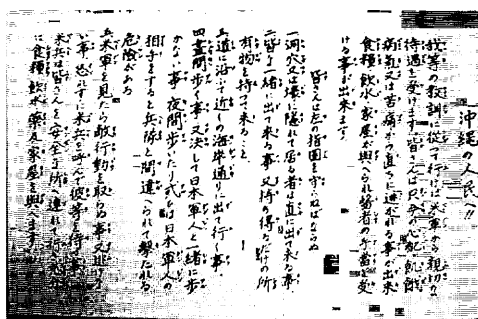 沖縄の人民へ!!
我等の教訓に従って行けば米軍から親切な
待遇を受けます 皆さんは只今の心配 飢餓
病気又は苦痛から直ちに逃がれる事が出来
食糧 飲水 家屋が與へられ醫者の手當も受
ける事が出来ます
皆さんは左の指圖を守らねばならぬ
一 洞穴又は壕に隠れて居る者は直ぐ出て来る事
二 皆と一緒に出て来る事 又持ち得る だけの所
有物を持って来ること
三 道に沿ふて近くの海岸通りに出て行く事
四 晝間歩く事 又決して日本軍人と緒に歩
かない事 夜間歩いたり 或は日本軍人の
相手をすると兵隊と間違へられて撃たれる
危険がある
五 米軍を見たら敵行動を取らぬ事 又逃げ
い事 恐れずに米兵を呼んで彼等を待つ事
米兵は皆さんを安全な所に連れて行き
に食糧 飲水 薬及家屋を與へます